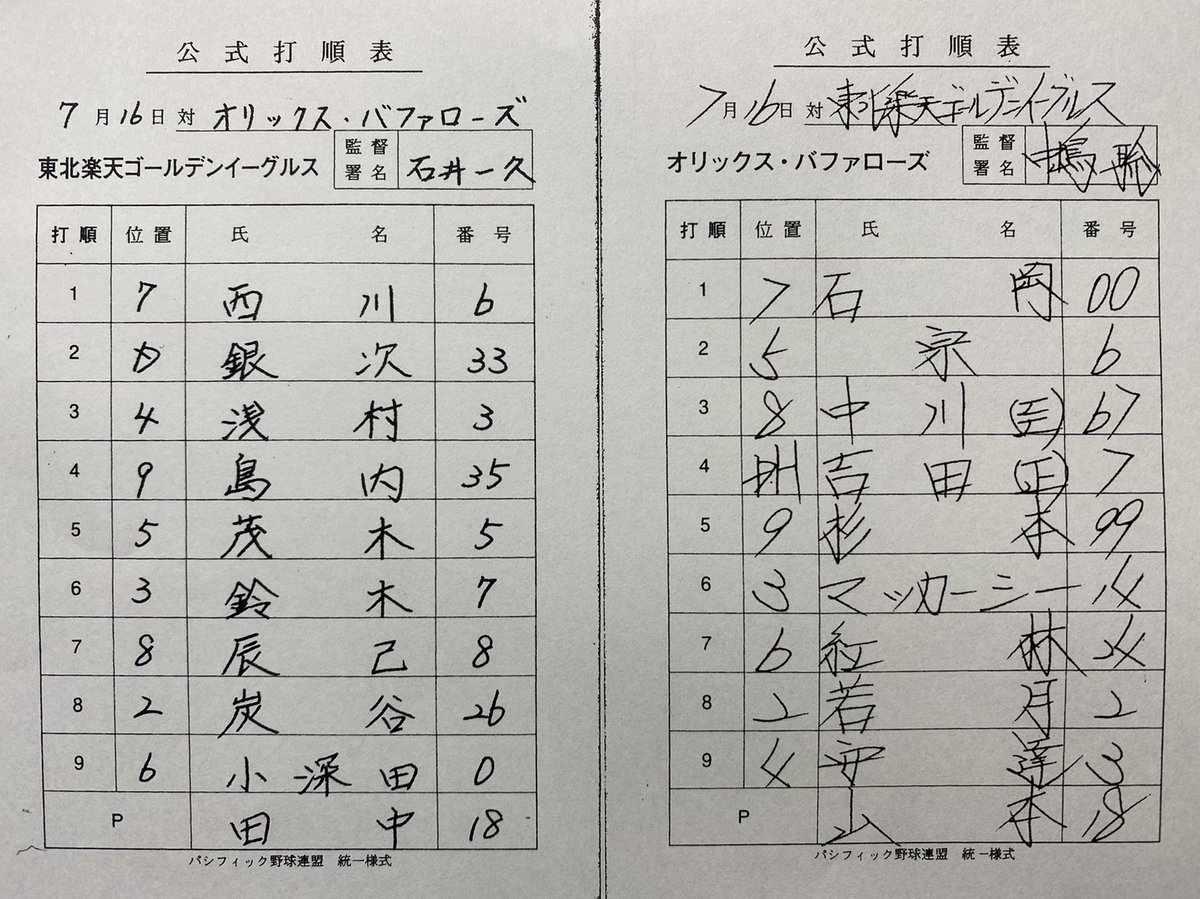 公式打順表
7月16日対 オリックス・バファローズ
東北楽天ゴールデンイーグルス 監督署名 石井一久
打順 位置 氏名 番号
1 7 西川 6
2 D 銀次 33
3 4 浅村 3
4 9 島内 35
5 5 茂木 5
6 3 鈴木 7
7 8 辰己 8
8 2 炭谷 26
9 6 小深田 0
P 田中 18
パシフィック野球連盟 統一様式
公式打順表
7月16日対 東北楽天ゴールデンイーグルス
オリックス・バファローズ 監督署名 中嶋聡
打順 位置 氏名 番号
1 7 石岡 00
2 5 宗 6
3 8 中川(圭) 67
4 DH 吉田(正) 7
5 9 杉本 99
6 3 マッカーシー 14
7 6 紅林 24
8 2 若月 2
9 4 安達 3
P 山本 18
パシフィック野球連盟 統一様式